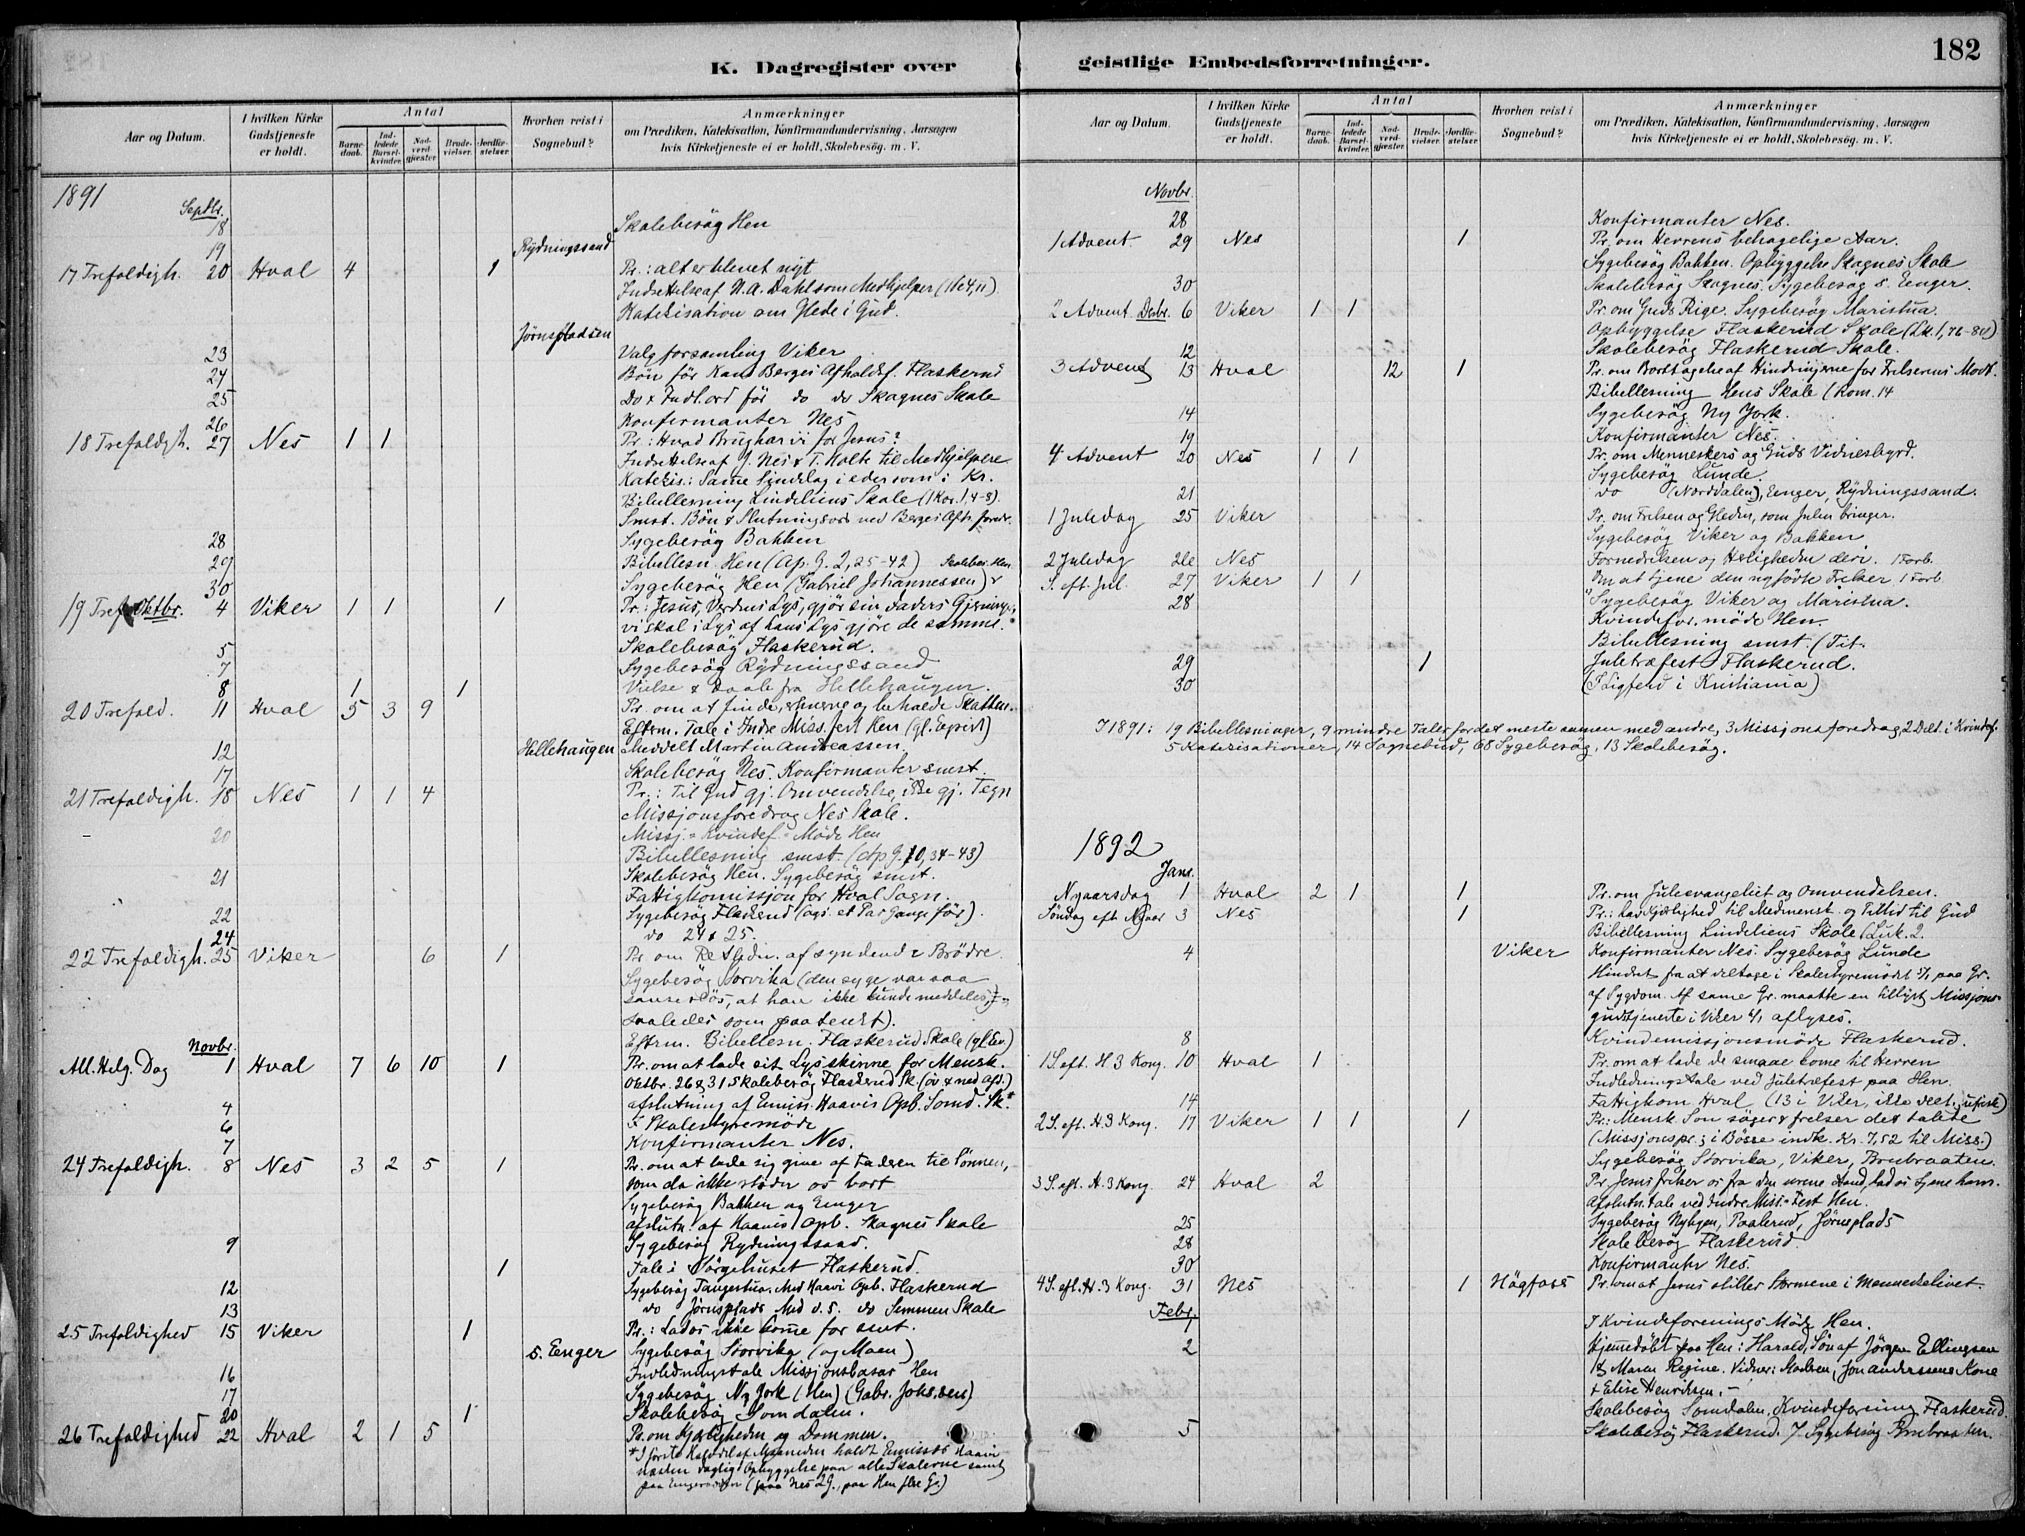 182
K. Dagregister over
geistlige Embedsforretninger.
Aar og Datum.
I hvilken Kirke Gudstjeneste er holdt.
Antal
Barnedaab.
Indledede Barselkvinder.
Nadverdgjæster.
Brudevielser.
Jordfæstelser.
Hvorhen reist i Sognebud?
Anmærkninger
om Prædiken, Katekisation, Konfirmandundervisning, Aarsagen
hvis Kirketjeneste ei er holdt, Skolebesög. m. V.
1891
Septbr.
18 Skolebesög Hen
19 Rydningssand
17 Trefoldigh. 20 Hval 4 1 Pr.: alt er blevet nyt
Indsettelse af N. A. Dahl som Medhjelper
Katekisation om Glede i Gud.
Jörnspladsen
23 Valgforsamling Viker
24 Bön för Kand Berges Afholdsf. Flaskerud
25 Do & Indl. ord för do do Skagnes Skole
26 Konfirmanter Nes
18 Trefoldigh. 27 Nes 1 1 Pr.: Hvad Brug har vi for Jesus?
Indsettelse af J. Nes & T. Holte til Medhjelpere
Katekis.: Samme Sindelag i eder som i Kr.
Bibellesning Lindeliens Skole (1 Kor. 1, 4-8).
Smst. Bön & Slutningsord ved Berges Afh. foredr.
28 Sygebesög Bakken
29 Bibellesn. Hen (Ap. G. 2, 25-42) Skolebes. Hen
30 Sygebesög Hen (Gabriel Johannessen)
19 Tref. Oktbr. 4 Viker 1 1 1 Pr.: Jesus, Verdens Lys, gjör sin Faders Gjerninger,
vi skal i Lys af hans Lys gjöre de samme.
5 Skolebesög Flaskerud.
7 Sygebesög Rydningssand
8 1 1 Vielse & Daab fra Hellehaugen.
20 Trefold. 11 Hval 5 3 9 Pr. om at finde, erhverve og beholde Skatten.
Eftrm. Tale i Indre Miss. fest Hen
12 Hellehaugen Meddelt Martin Andreassen
17 Skolebesög Nes. Konfirmanter smst.
21 Trefoldigh. 18 Nes 1 1 4 Pr.: Til Gud gj. Omvendelse, ikke gj. Tegn
Missjonsforedrag Nes Skole.
20 Missj. Kvindef. Möde Hen
Bibellesning smst. (Ap G. 10, 34-43)
21 Skolebesög Hen. Sygebesög smst.
Fattigkomissjon for Hval Sogn.
22 Sygebesög Flaskerud (ogs. et Par Gange för).
24 do 24 & 25.
22 Trefoldigh. 25 Viker 6 1 Pr. om syndende Brödre.
Sygebesög Storvika (den syge var saa
sanseslös, at han ikke kunde meddeles,
saaledes som paatenkt).
Eftrm. Bibellesn. Flaskerud Skole
Novbr.
All. Helg. Dag 1 Hval 7 6 10 1 Pr. om at lade sit Lys skinne for Mensk.
Oktbr. 26 & 31 Skolebesög Flaskerud Sk.
4 afslutning af Emiss. Haavis Opb. Somd. Sk.*
6 I Skolestyremöde
7 Konfirmanter Nes.
24 Trefoldigh. 8 Nes 3 2 5 1 Pr. om at lade sig give af Faderen til Sönnen,
som da ikke stöder os bort
Sygebesög Bakken og Eenger
Afslutn. af Haavis Opb. Skagnes Skole
9 Sygebesög Rydningssand.
1 Tale i Sörgehuset Flaskerud.
12 Sygebesög Tangestua. Med Haavi Opb. Flaskerud
13 do Jörnsplads Med d. s. do Semmen Skole
25 Trefoldighed 15 Viker 1 Pr.: Lad os ikke komme for sent.
S. Eenger Sygebesög Storvika (og Moen)
16 Indledningstale Missjonsbasar Hen
17 Sygebesög Ny York (Hen) (Gabr. Johs.sens)
20 1 Skolebesög Somdalen.
26 Trefoldighed 22 Hval 2 1 5 Pr. om Kjerligheden og Dommen.
* I förste Halvdel af Maaneden holdt Emissær Haavi
næsten daglig Opbyggelse paa alle Skolerne samt
paa (paa Nes 2 G., paa Hen flere G.)
Aar og Datum.
I hvilken Kirke Gudstjeneste er holdt.
Antal
Barnedaab.
Indledede Barselkvinder.
Nadverdgjæster.
Brudevielser.
Jordfæstelser.
Hvorhen reist i Sognebud?
Anmærkninger
om Prædiken, Katekisation, Konfirmandundervisning, Aarsagen
hvis Kirketjeneste ei er holdt, Skolebesög. m. V.
Novbr.
28 Konfirmanter Nes.
1 Advent. 29 Nes 1 Pr. om Herrens behagelige Aar.
Sygebesög Bakken. Opbyggelse Skagnes Skole
30 Skolebesög Skagnes. Sygebesög S. Eenger.
2 Advent Decbr. 6 Viker 1 1 Pr. om Guds Rige. Sygebesög Maristua.
Opbyggelse Flaskerud Skole (Luk. 1, 76-80)
12 Skolebesög Flaskerud Skole.
3 Advent 13 Hval 12 1 Pr. om Borttagelse af Hindringerne for Frelserens Modt.
Bibellesning Hens Skole (Rom. 14
14 Sygebesög Ny York.
19 Konfirmanter Nes.
4 Advent 20 Nes 1 1 Pr. om Menneskers og Guds Vidnesbyrd.
Sygebesög Lunde.
21 do (Norddalen), Eenger, Rydningssand.
1 Juledag 25 Viker Pr. om Frelsen og Gleden, som Julen bringer.
Sygebesög Viker og Bakken
2 Juledag 26 Nes Fornedrelsen og Herligheden deri. 1 Forb.
S. eft. Jul. 27 Viker 1 1 Om at tjene den nyfödte Frelser 1 Forb.
28 Sygebesög Viker og Maristua.
Kvindefor. möde Hen.
Bibellesning smst. (Tit.
29 1 Juletræfest Flaskerud.
30 (I Ligferd i Kristiania)
I 1891: 19 Bibellesninger, 9 mindre Taler for det meste sammen med andre, 3 Missjonsforedrag 2 Delt. i Kvindef.
5 Katekisationer, 14 Sognebud, 68 Sygebesög, 13 Skolebesög.
1892
Jan.
Nyaarsdag 1 Hval 2 1 1 Pr. om Juleevangeliet og Omvendelsen.
Söndag eft. Nyaar 3 Nes 1 Pr.: hav Kjerlighed til Medmensk. og Tillid til Gud
Bibellesning Lindeliens Skole (Luk. 2.
4 Viker Konfirmanter Nes. Sygebesög Lunde
Hindret fra at deltage i Skolestyremödet paa Gr.
af Sygdom. Af samme Gr. maatte en tillyst Missjons-
gudstjeneste i Viker 6/1 aflyses.
8 Kvindemissjonsmöde Flaskerud.
1 S. eft. H. 3 Kong. 10 Hval 1 Pr. om at lade de smaae komme til Herren
Indledningstale ved Juletræfest paa Hen
14 Fattigkom. Hval (13 i Viker, ikke delt.; ufrisk)
2 S. eft. H. 3 Kong. 17 Viker 1 1 1 Pr.: Mensk. Sön söger & frelser det tabte
(Missjonspr.; i Bösse indk. Kr. 7,52 til Miss.)
Sygebesög Storvika, Viker, Brubraaten.
3 S. eft. H. 3 Kong. 24 Hval 2 Pr. Jesus frelser os fra den urene Aand, lad os tjene ham.
Afslutn. tale ved Indre Miss. Fest Hen.
25 Sygebesög Nybyen, Paalerud, Jörnsplads
28 Skolebesög Flaskerud.
30 Konfirmanter Nes.
4 S. eft. H. 3 Kong. 31 Nes 1 Högfoss Pr. om at Jesus stiller Stormene i Menneskelivet.
Febr.
1 I Kvindeforenings Möde Hen.
2 Hjemmedöbt paa Hen: Harald, Sön af Jörgen Ellingsen
& Maren Regine. Vidner: Modren, Jon Anderssens Kone
& Elise Henriksen.
Skolebesög Somdalen. Kvindeforening Flaskerud.
5 Skolebesög Flaskerud. 7 Sygebesög Brubraaten.